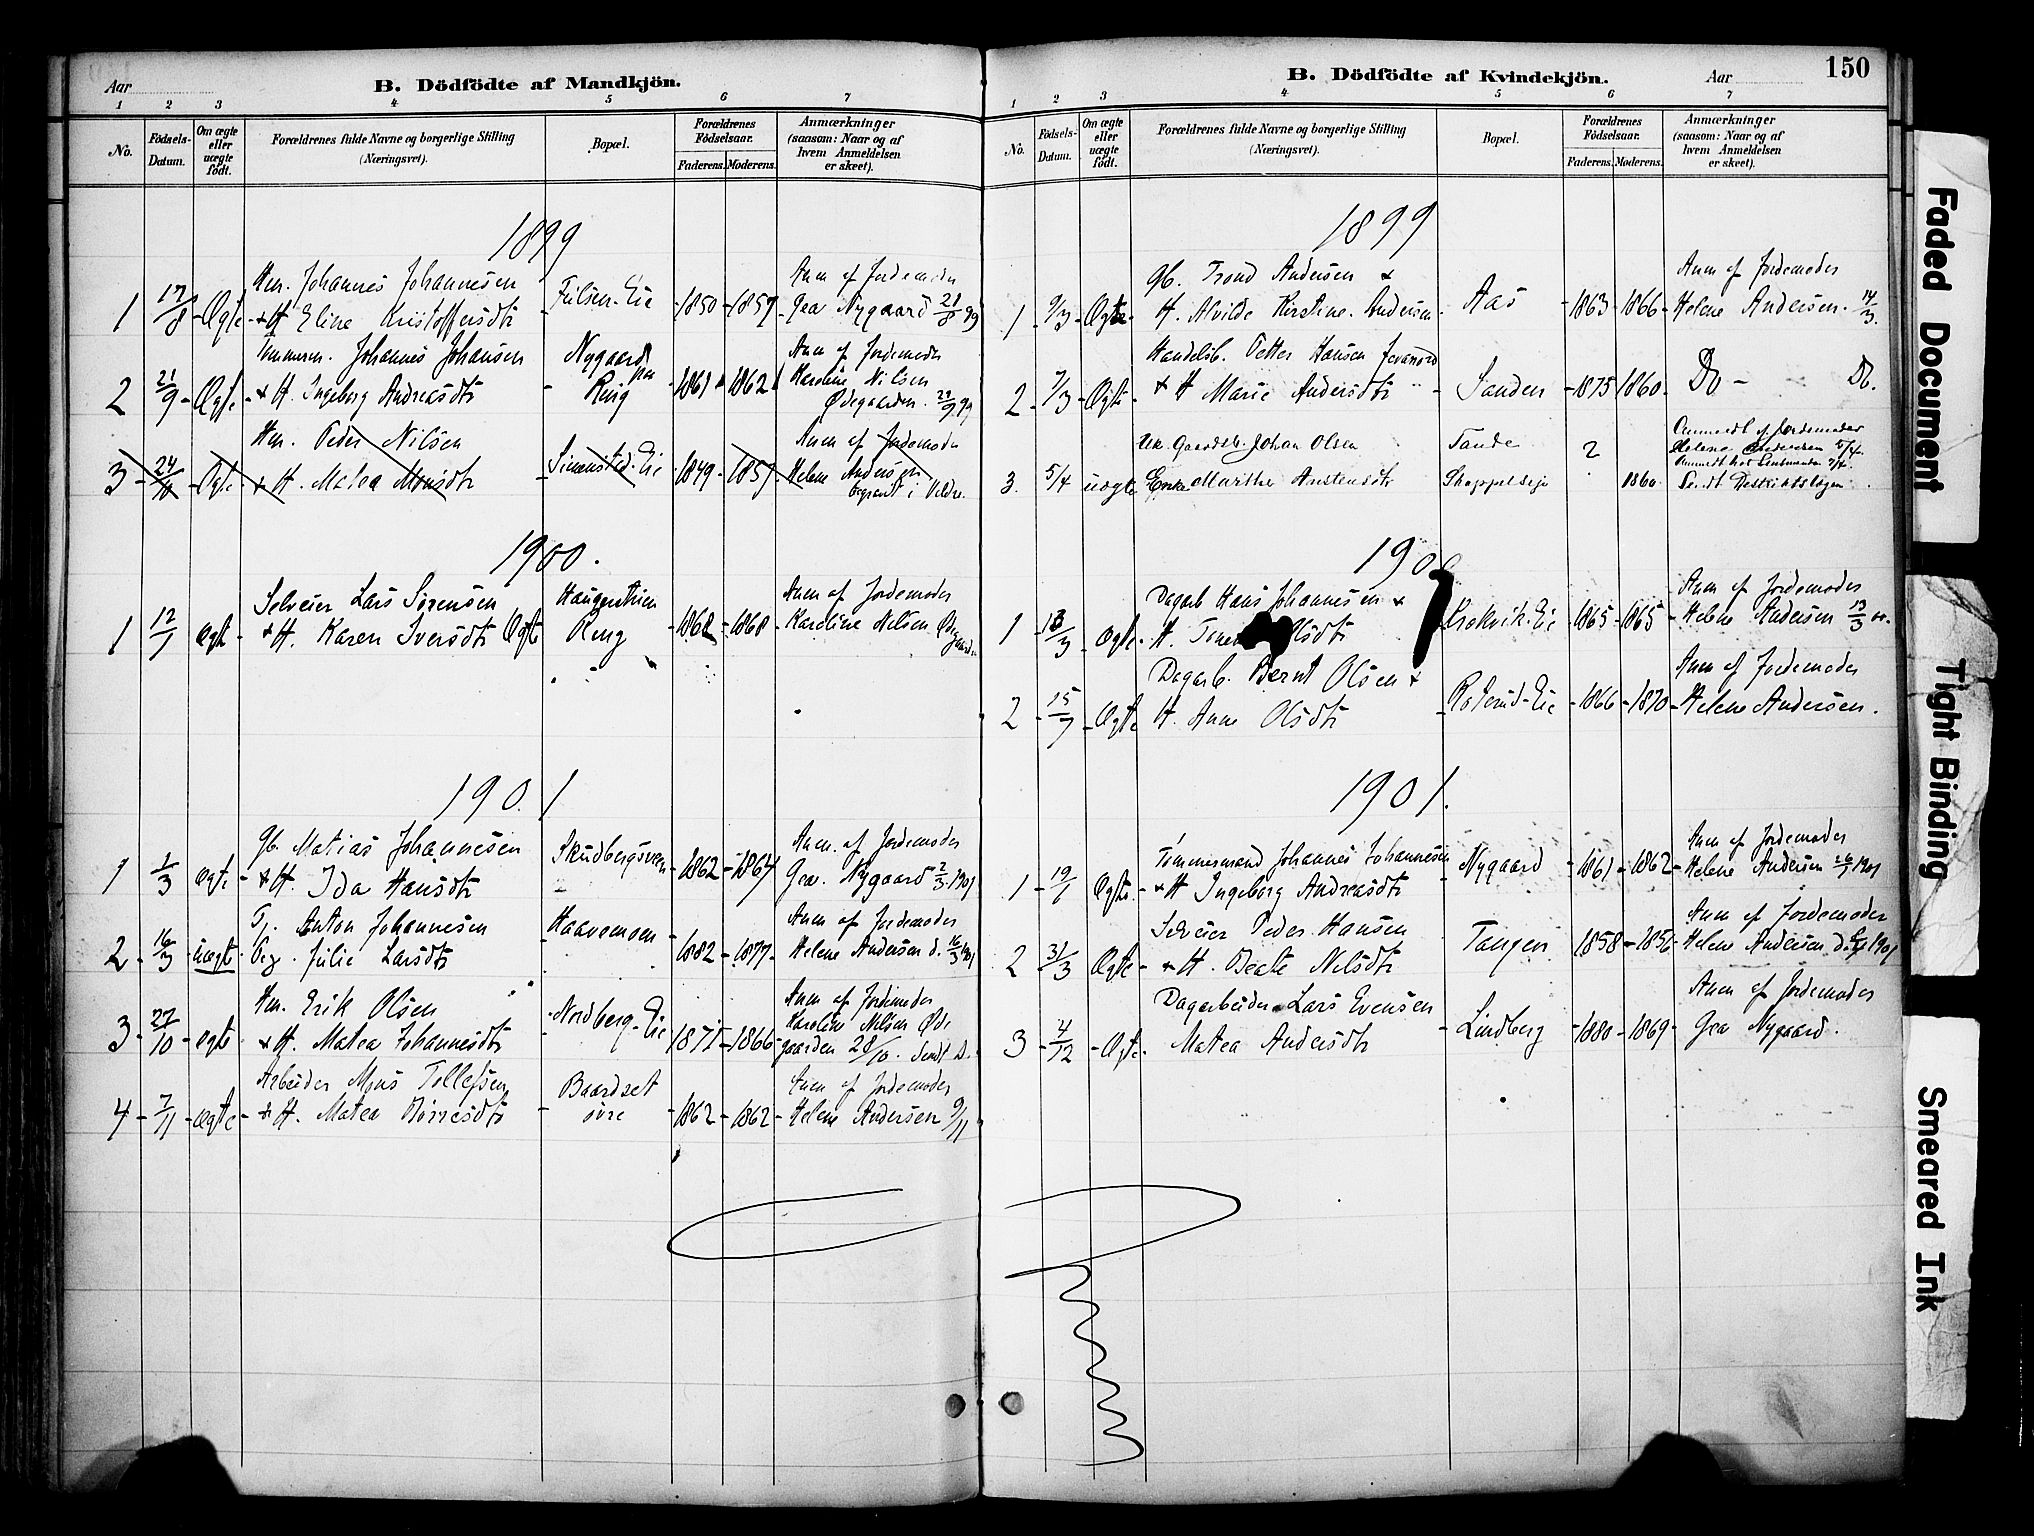 Aar
B. Dödfödte af Mandkjön.
1 2 3 4 5 6 7
No.
Födsels-
Datum.
Om ægte
eller
uægte
födt.
Forældrenes fulde Navne og borgerlige Stilling
(Næringsvei).
Bopæl.
Forældrenes
Födselsaar.
Faderens. Moderens.
Anmærkninger
(saasom: Naar og af
hvem Anmeldelsen
er skeet).
1899
1 17/8 Ægte
Johannes Johannesen
+ H Eline Kristoffersdtr
Eie
1850 - 1857
Anm af Jordemoder
Gea Nygaard 21/8 99
2 21/9 Ægte
Johannes Johansen
+ H. Ingeborg Andreasdtr
Nygaard
Ring
1861 1862
Anm af Jordemoder
Karoline Nilsen
Ødegaarden. 99
3 24/10 Ægte
Peder Nilsen
+ H. Matea Monsdtr
Simensted. Eie
1849 - 1857
Anm af Jordemoder
Helene Andersen
begravet i Veldre.
1900.
1 12/1 ægte
Selveier Lars Sørensen
+ H. Karen Iversdtr Ægte
Ring
1862 - 1868
Anm af Jordemoder
Karoline Nilsen Ødegaarden
1901
1 1/3 ægte
Gb. Matias Johannesen
+ H. Ida Hansdtr
Skudbergsven
1862 - 1864
Anm. af Jordemoder
Gea. Nygaard 2/3 1901
2 16/3 uægte
Tj. Anton Johannesen
Peg. Julie Larsdtr
Haavemoen
1882 - 1877
Anm af Jordemoder
Helene Andersen d. 16/3 1901
3 27/10 ægte
Erik Olsen
+ H. Matea Johannesdtr
Nordberg - Eie
1871 - 1866
Anm af Jordemoder
Karoline Nilsen Øde
gaarden 28/10. Sendt D.
4 7/11 ægte
Arbeider Mons Tollefsen
+ H. Matea Børresdtr
Baardset
øvre
1862 - 1862
Anm af Jordemoder
Helene Andersen 9/11
B. Dödfödte af Kvindekjön.
Aar
150
1 2 3 4 5 6 7
No.
Födsels-
Datum.
Om ægte
eller
uægte
födt.
Forældrenes fulde Navne og borgerlige Stilling
(Næringsvei).
Bopæl.
Forældrenes
Födselsaar.
Faderens. Moderens.
Anmærkninger
(saasom: Naar og af
hvem Anmeldelsen
er skeet).
1899
1 9/3 Ægte
Gb. Trond Andersen +
H. Alvilde Kirstine Andersen
Aas
1863 - 1866
Anm af Jordemoder
Helene Andersen. 14/3.
2 7/3 Ægte
Handelsb. Petter Hansen
+ H Marie Andersdtr
Sanden
1875 - 1860
Do - Do.
3. 5/4 uægte
Uk. Gaardsb. Johan Olsen
Enke Marthe Austensdtr
Tande
?
1860
Anmeldt af Jordemoder
Helene Andersen 5/4.
Anmeldt hos Lensmanden
Sendt Distriktslægen
1900
1 13/3 Ægte
Dagarb Hans Johannesen +
H. Olsdtr
Krokvik. Eie
1865 - 1865
Anm af Jordemoder
Helene Andersen 13/3
2 15/7 Ægte
Dagarb. Bernt Olsen +
H. Anne Olsdtr
Roterud - Eie
1866 - 1870
Anm af Jordemoder
Helene Andersen.
1901.
1 19/1 Ægte
Tømmermand Johannes Johannesen
+ H Ingeborg Andreasdtr
Nygaard
1861 - 1862
Anm af Jordemoder
Helene Andersen 1901
2 31/3 Ægte
Selveier Peder Hansen
+ H. Beate Nilsdtr
Tangen
1858 - 1856
Anm af Jordemoder
Helene Andersen 1901
3 4/12 Ægte
Dagarbeider Lars Evensen
Matea Andersdtr
Lindberg
1880 - 1869
Anm af Jordemoder
Gea Nygaard.
Faded Document
Tight Binding
Smeared Ink